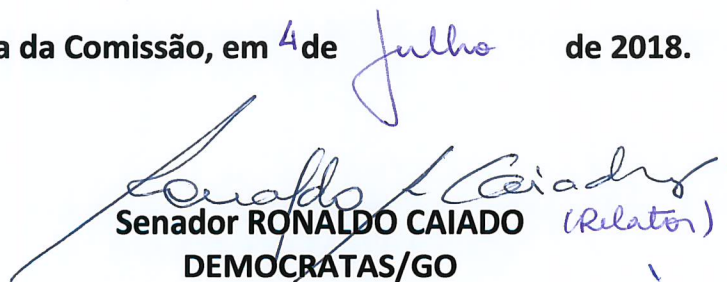 a da Comissão, em 4 de Julho de 2018.
Ronaldo Caiado
Senador RONALDO CAIADO (Relator)
DEMOCRATAS/GO